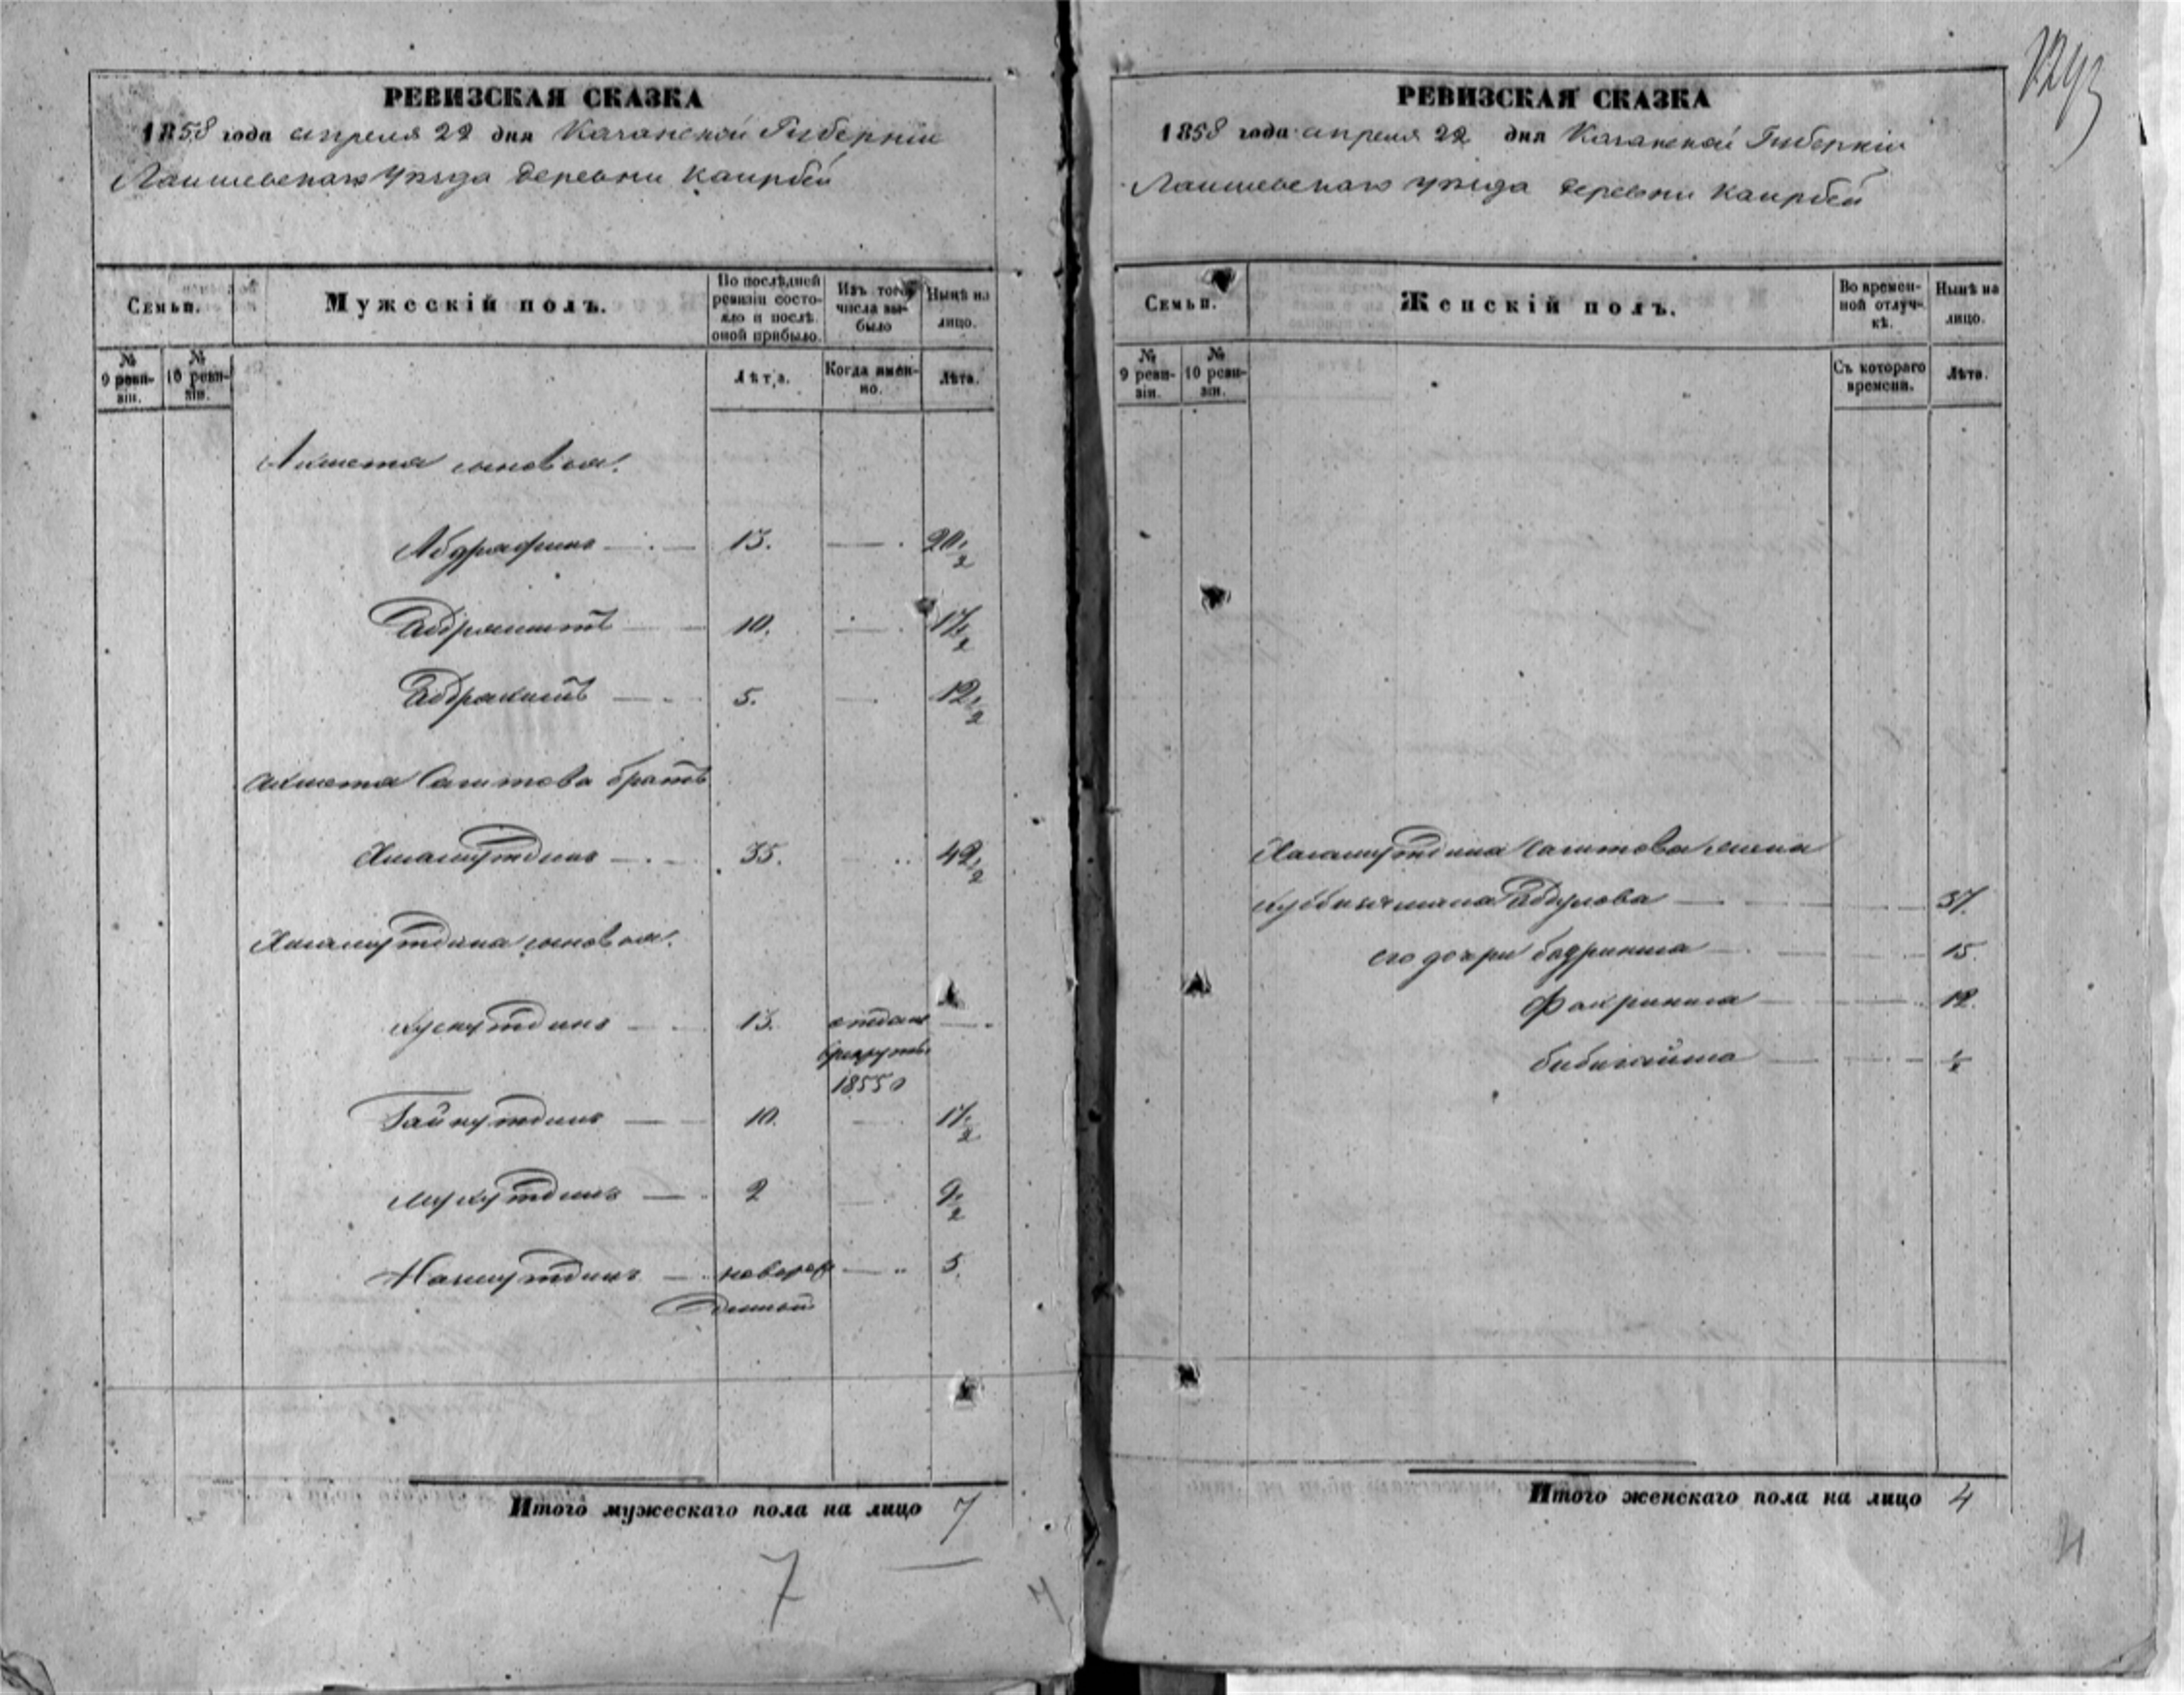 РЕВИЗСКАЯ СКАЗКА
1858 года апреля 22 дня Казанской Губерніи
Лаишевскаго уѣзда деревни Каирбей
Семьи.
Мужескій полъ.
По послѣдней ревизіи состояло и послѣ оной прибыло.
Изъ того числа выбыло
Нынѣ на лицо.
№ 9 ревизіи.
№ 10 ревизіи.
Лѣта.
Когда именно.
Лѣта.
Ахмета сыновья:
Абдряфикъ 13. 20 1/2
Габдряшитъ 10. 17 1/2
Габдрахитъ 5. 12 1/2
Ахмета Сагитова братъ
Хисамутдинъ 35. 42 1/2
Хисамутдина сыновья:
13. отданъ
в рекруты
1855 г
Гайнутдинъ 10. 17 1/2
2 9 1/2
Назмутдинъ новорож 5.
денный
Итого мужескаго пола на лицо 7
7
РЕВИЗСКАЯ СКАЗКА
1858 года апреля 22 дня Казанской Губерніи
Лаишевскаго уѣзда деревни Каирбей
Семьи.
Женскій полъ.
Во временной отлучкѣ.
Нынѣ на лицо.
№ 9 ревизіи.
№ 10 ревизіи.
Съ котораго времени.
Лѣта.
Хисамутдина Сагитова жена
Габдулова 37.
его дочри Бадриниса 15.
Фахриниса 12.
1/2
Итого женскаго пола на лицо 4